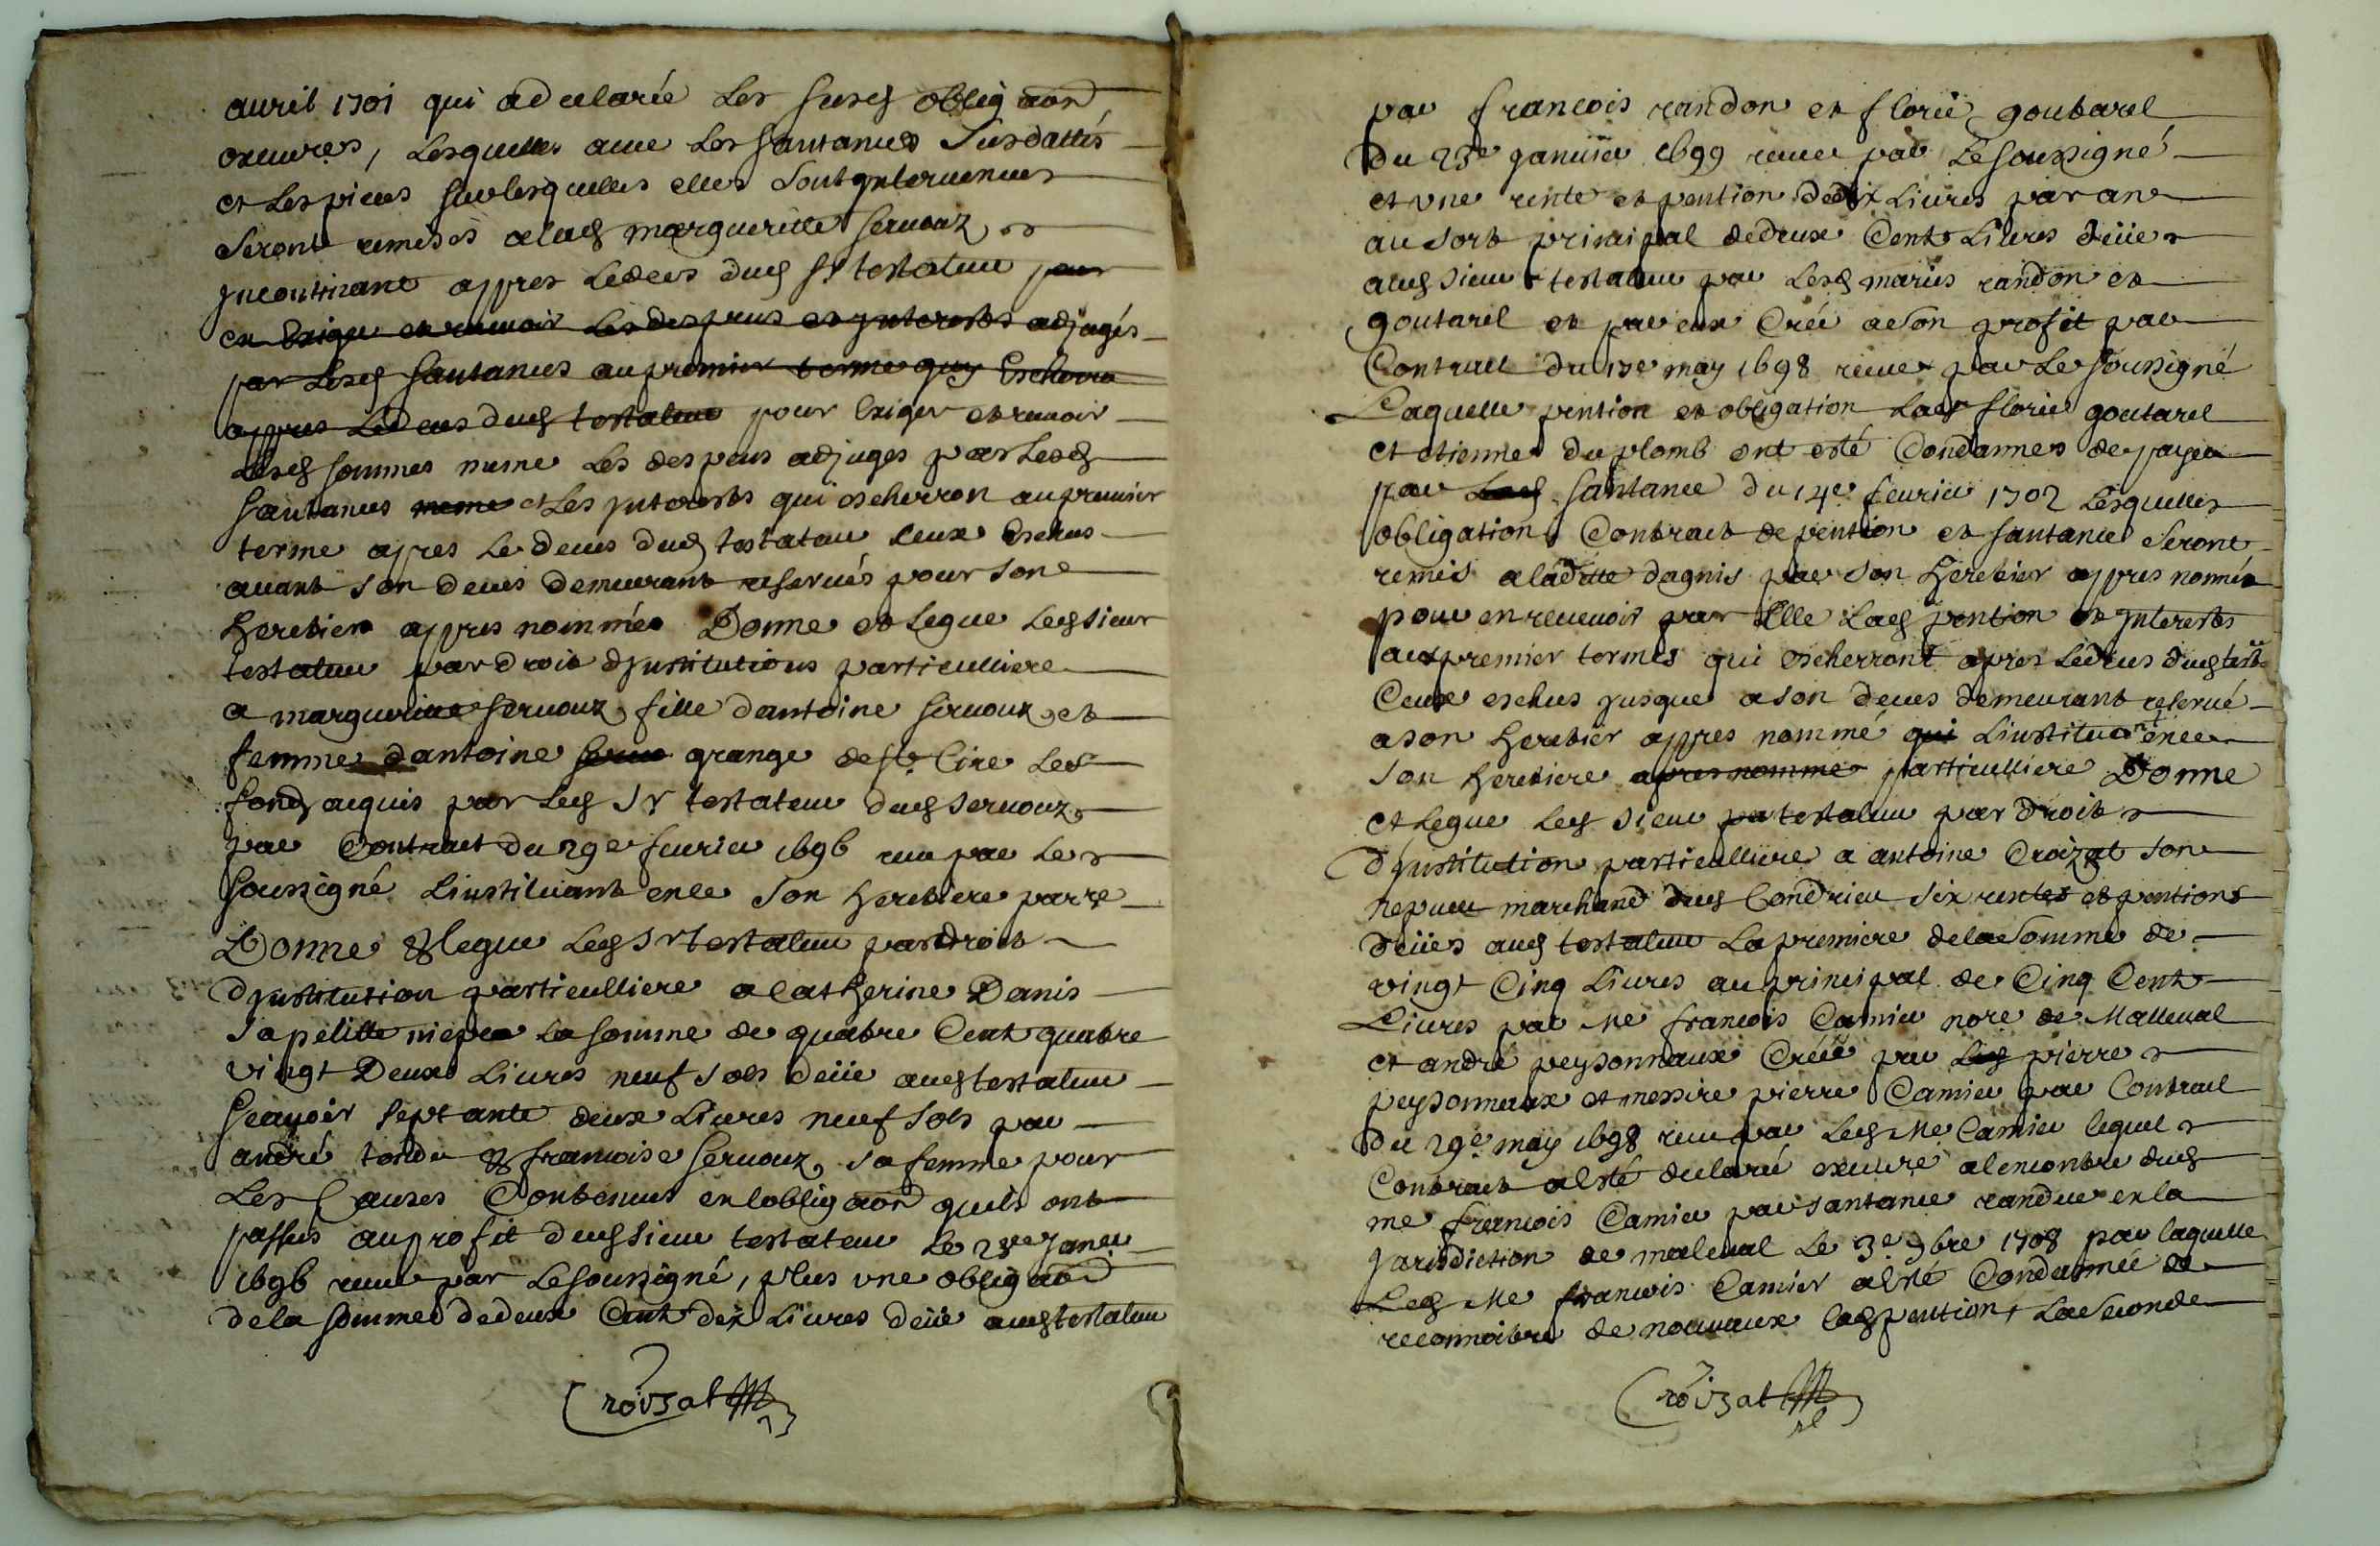 auril 1701 qui adeclarée Les susd obligaõn
exeuvres, Lesquelles auec Les santances susdattés
et Les pieces surlesquelles elles sont ynteruenues
seront remises alad margueritte seruouz
yncontinant appres Ledeces dud sr testateur pour
en exiger et reuoir Les despens et ynterests adjugés
par Lesd santances au premier terme quy Escherra
appres Ledeces dud testateur pour exiger et reuoir
Lesd sommes mesme Les despens adjuges par Lesd
santances meme et Les ynterests qui escherron au premier
terme apres Le deces dud testateur ceux Eschus
auant son deces demeurant reserués pour son
heretier appres nommée Donne et Legue Led sieur
testateur par droit dynstitutions particulliere
a margueritte seruouz fille dantoine seruouz et
femme dantoine seruo grange de st Cire Les
fonds acquis par Led Sr testateur dud seruouz
par Contract du 29e feurier 1696 receu par Le
soussigné Linstituant en ce son heretiere parre
Donne & legue Led Sr testateur par droit
dynstitution particulliere a Catherine Danis
sa petitte niepce La somme de quatre Cent quatre
vingt Deux Liures neuf sols deüe aud testateur
scauoir septante deux Liures neuf sols par
andré tondu & francoise seruouz sa femme pour
Les Causes Contenues en lobligaõn quils ont
passés au profit dud sieur testateur Le 23e Janer
1696 receue par Le soussigné, plus vne obligaõn
de la somme de deux Cent dix Liures deüe aud testateur
Croizat
par francois randon et florie goutarel
du 23e januier 1699 receue par Le soussigné
et vne rente et pention de dix Liures par an
au sort principal de deux Cent Liures deües
aud sieur testateur par Lesd mariés randon et
goutarel et par eux Créé a son profit par
Contract du 17e may 1698 receue par Le soussigné
Laquelle pention et obligation Lad florie goutarel
et etienne du plomb ont esté Condamnes de payer
par Lad santance du 14e feurier 1702 Lesquelles
obligation, Contract de pention et santance seront
remis a ladite dagnis par son heretier appres nommé
pour en receuoir par Elle Lad pention et ynterests
aux premier termes qui escherront apres Ledeces dud testr
Ceux eschus jusque a son deces demeurant reserué
a son heretier appres nommé qui Linstituant en ce
son heretiere apres nommé particulliere Donne
et Legue Led sieur pa testateur par droit
dynstitution particulliere a antoine Croizat son
nepueu marchand dud Condrieu six rentes et pentions
deües aud testateur La premiere de la somme de
vingt Cinq Liures au principal de Cinq Cent
Liures par Me francois Camier nore de Malleual
et andré peysonneaux Créé par Led pierre
peysonneaux et messire pierre Camier par Contract
du 29e may 1698 receu par Led Me Camier lequel
Contract a esté declaré exeuvre alencontre dud
me francois Camier par santance randue en la
jurisdiction de maleual Le 3e 9bre 1708 par laquelle
Led Me francois Camier a esté Condamné de
reconnoitre de nouuaux lad pention, La seconde
Croizat